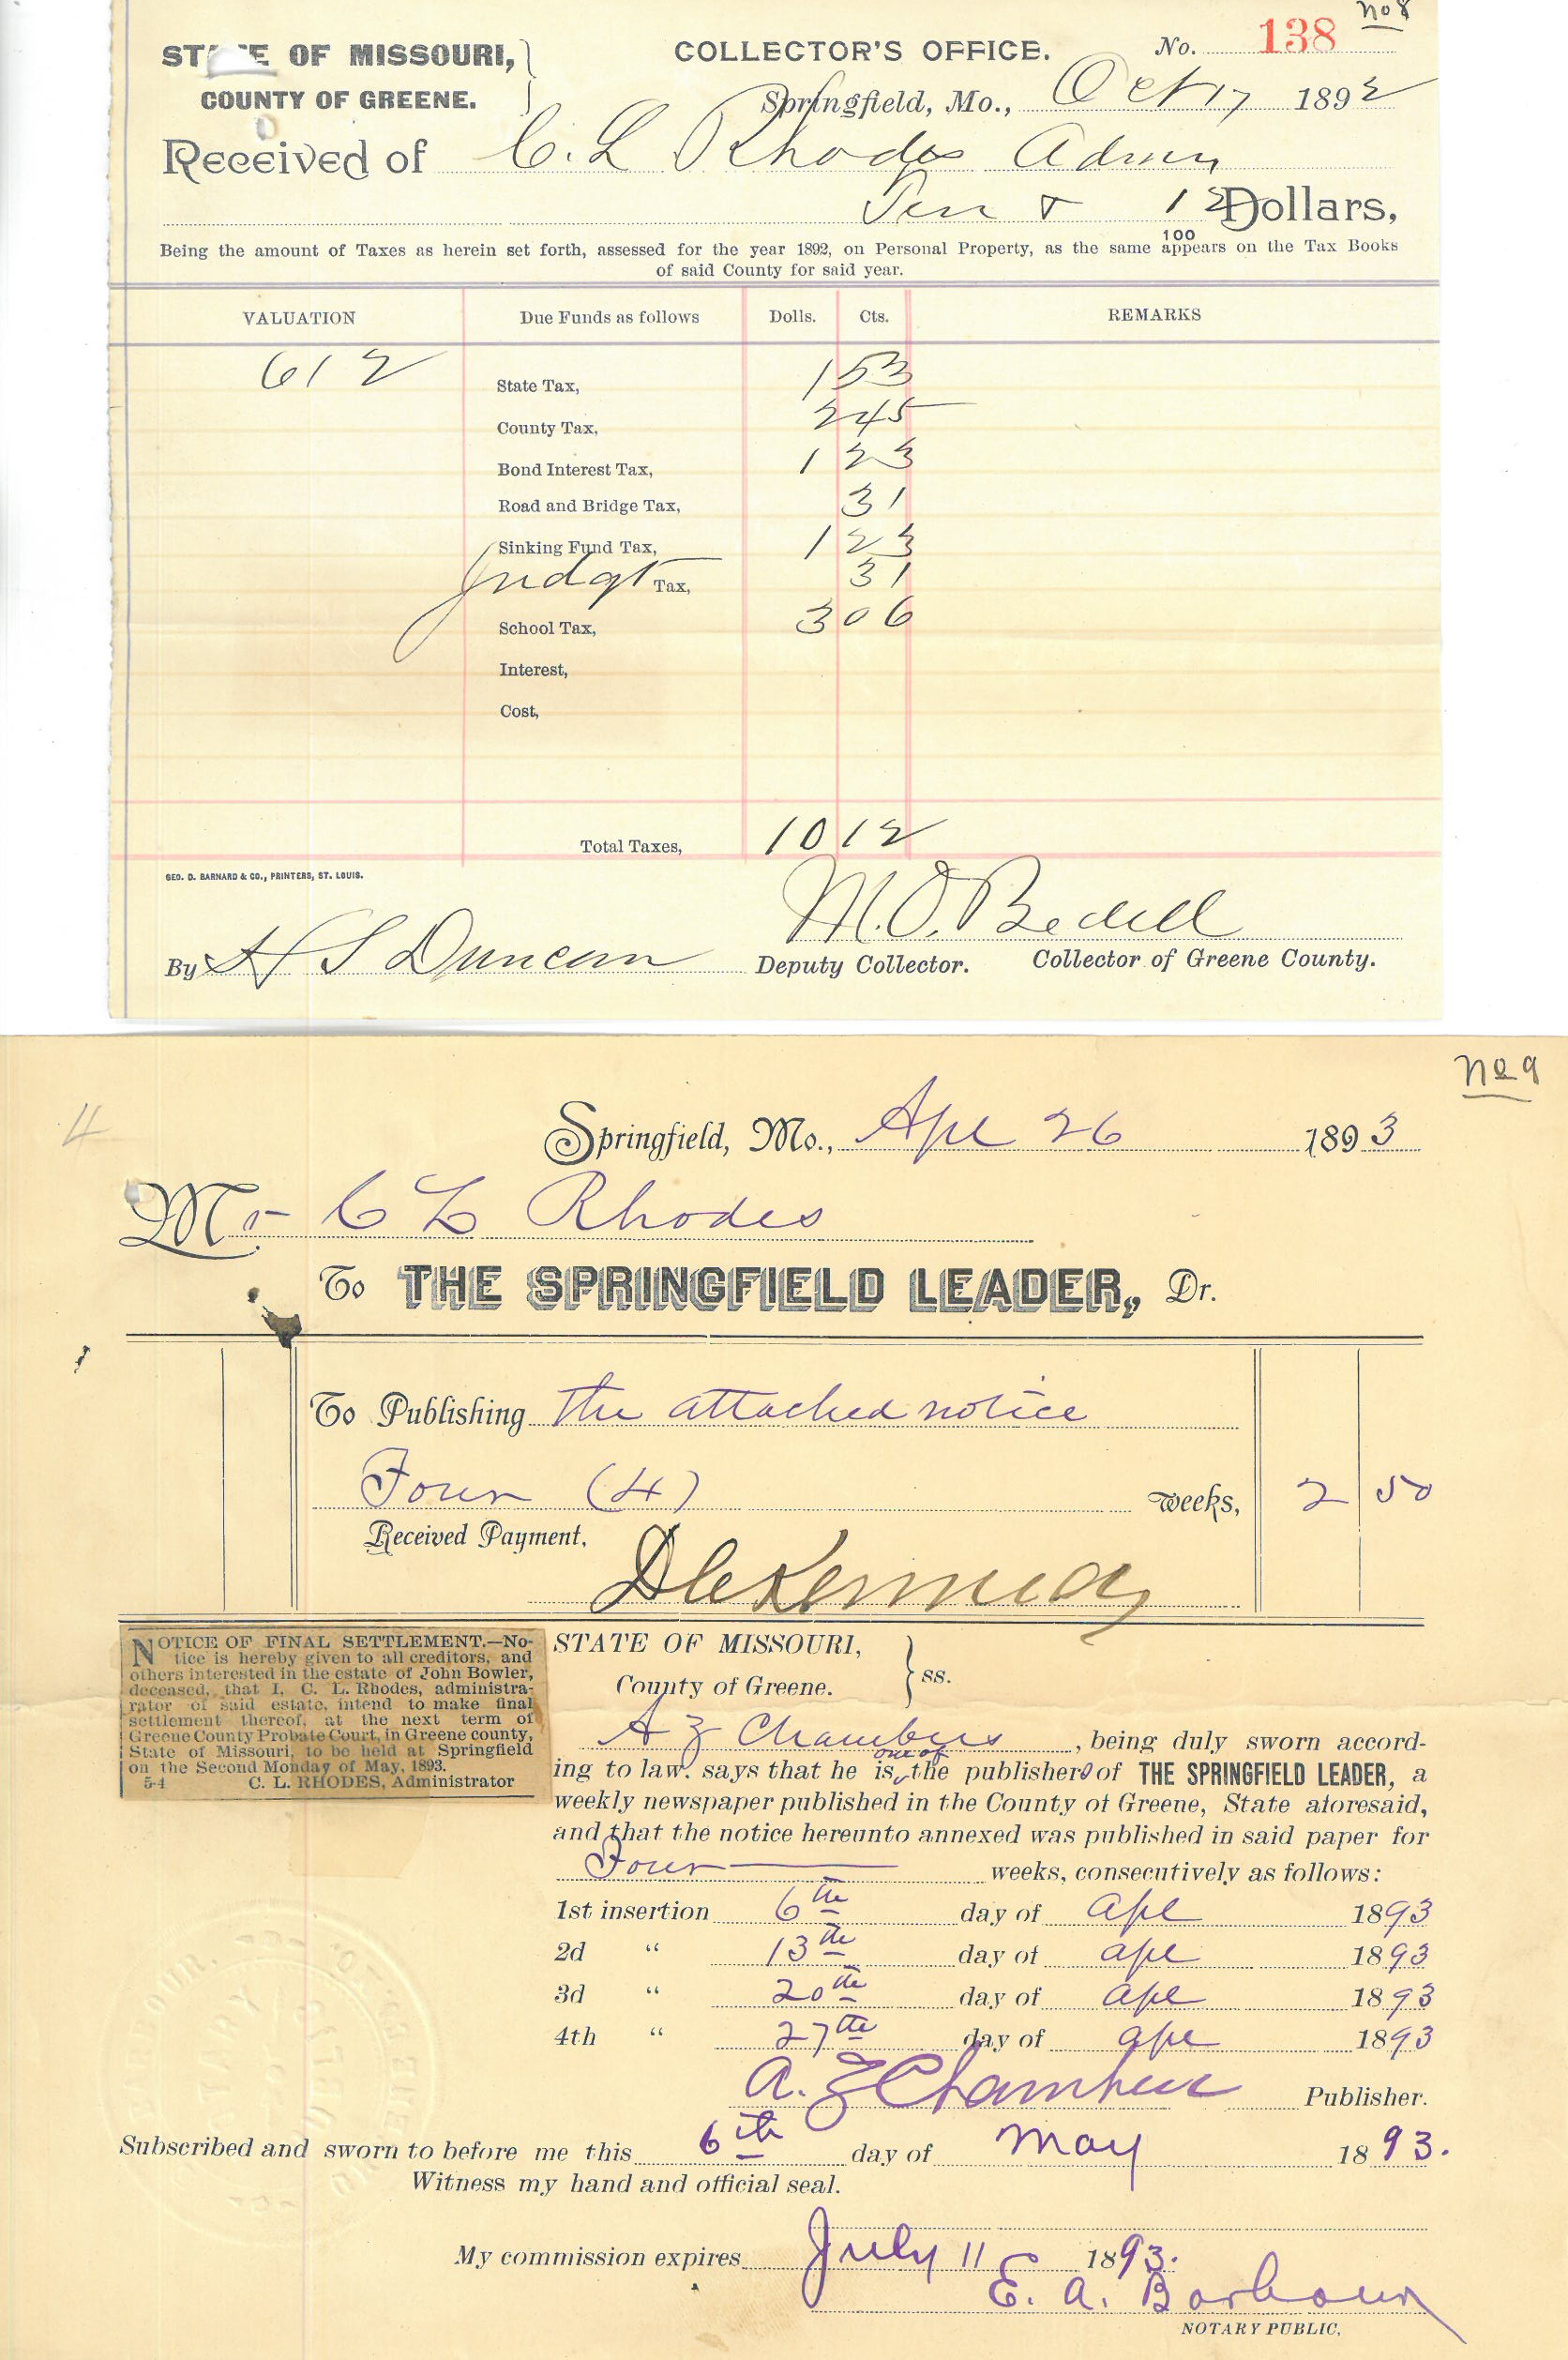 No 8
STATE OF MISSOURI, COLLECTOR'S OFFICE. No. 138
COUNTY OF GREENE. Springfield, Mo., Oct 17 1892
Received of C. L Rhodes Admn
Ten & 12 Dollars,
100
Being the amount of Taxes as herein set forth, assessed for the year 1892, on Personal Property, as the same appears on the Tax Books
of said County for said year.
VALUATION Due Funds as follows Dolls. Cts. REMARKS
612 State Tax, 1 53
County Tax, 2 45
Bond Interest Tax, 1 23
Road and Bridge Tax, 31
Sinking Fund Tax, 1 23
Judgt Tax, 31
School Tax, 3 06
Interest,
Cost,
Total Taxes, 10 12
GEO. D. BARNARD & CO., PRINTERS, ST. LOUIS.
M. O. Bedell
By H S Duncan Deputy Collector. Collector of Greene County.
No 9
4
Springfield, Mo., Apl 26 1893
Mr C L Rhodes
To THE SPRINGFIELD LEADER, Dr.
To Publishing the attached notice
Four (4) weeks, 2 50
Received Payment,
D C Kennedy
NOTICE OF FINAL SETTLEMENT.—No-
tice is hereby given to all creditors, and
others interested in the estate of John Bowler,
deceased, that I, C. L. Rhodes, administra-
rator of said estate, intend to make final
settlement thereof, at the next term of
Greene County Probate Court, in Greene county,
State of Missouri, to be held at Springfield
on the Second Monday of May, 1893.
5-4 C. L. RHODES, Administrator
STATE OF MISSOURI,
County of Greene. } ss.
A Z Chambers, being duly sworn accord-
one of
ing to law, says that he is the publisher of THE SPRINGFIELD LEADER, a
weekly newspaper published in the County of Greene, State aforesaid,
and that the notice hereunto annexed was published in said paper for
Four weeks, consecutively as follows:
1st insertion 6th day of Apl 1893
2d " 13th day of Apl 1893
3d " 20th day of Apl 1893
4th " 27th day of Apl 1893
A. Z Chambers Publisher.
Subscribed and sworn to before me this 6th day of May 1893.
Witness my hand and official seal.
My commission expires July 11 1893.
E. A. Barbour
NOTARY PUBLIC.